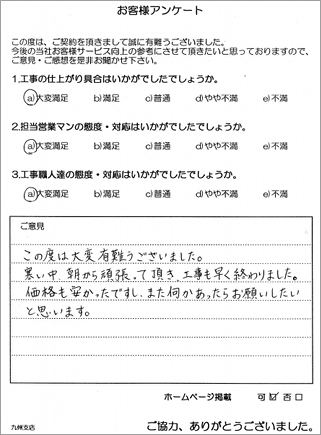 お客様アンケート
この度は、ご契約を頂きまして誠に有難うございました。
今後の当社お客様サービス向上の参考にさせて頂きたいと思っておりますので、
ご意見・ご感想を是非お聞かせ下さい。
1.工事の仕上がり具合はいかがでしたでしょうか。
a)大変満足 b)満足 c)普通 d)やや不満 e)不満
2.担当営業マンの態度・対応はいかがでしたでしょうか。
a)大変満足 b)満足 c)普通 d)やや不満 e)不満
3.工事職人達の態度・対応はいかがでしたでしょうか。
a)大変満足 b)満足 c)普通 d)やや不満 e)不満
ご意見
この度は大変有難うございました。
寒い中、朝から頑張って頂き、工事も早く終わりました。
価格も安かったですし、また何かあったらお願いしたい
と思います。
ホームページ掲載 可☑ 否□
九州支店 ご協力、ありがとうございました。